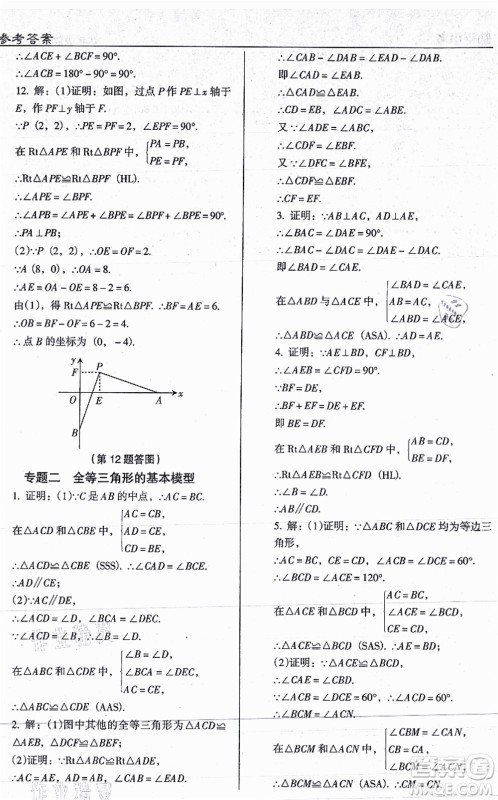 参考答案
∴∠ACE+∠BCF=90°.
∴∠ACB=180°-90°=90°.
12. 解：(1)证明：如图，过点P作PE⊥x轴于
E，作PF⊥y轴于F.
∵P (2，2)，∴PE=PF=2，∠EPF=90°.
在Rt△APE和Rt△BPF中，{PA=PB,
PE=PF,
∴Rt△APE≌Rt△BPF (HL).
∴∠APE=∠BPF.
∴∠APB=∠APE+∠BPE=∠BPF+∠BPE=90°.
∴PA⊥PB；
(2)∵P (2，2)，∴OE=OF=2.
∵A (8，0)，∴OA=8.
∴AE=OA-OE=8-2=6.
由(1)，得Rt△APE≌Rt△BPF. ∴BF=AE=6.
∴OB=BF-OF=6-2=4.
∴点B的坐标为 (0，-4).
y
F
P
O
E
A
x
B
(第12题答图)
专题二 全等三角形的基本模型
1. 证明：(1)∵C是AB的中点，∴AC=BC.
在△ACD和△CBE中，{AC=CB,
AD=CE,
CD=BE,
∴△ACD≌△CBE (SSS). ∴∠ACD=∠BCE.
∴AD∥CE；
(2)∵AC∥DE，
∴∠ACD=∠D，∠BCA=∠DEC.
∵∠ACD=∠B，∴∠B=∠D.
在△ABC和△CDE中，{∠B=∠D,
∠BCA=∠DEC,
AC=CE,
∴△ABC≌△CDE (AAS).
2. 解：(1)图中其他的全等三角形为△ACD≌
△AEB，△DCF≌△BEF；
(2)证明：∵Rt△ABC≌Rt△ADE，
∴AC=AE，AD=AB，∠CAB=∠EAD.
∴∠CAB-∠DAB=∠EAD-∠DAB.
即∠CAD=∠EAB.
∴△CAD≌△EAB.
∴CD=EB，∠ADC=∠ABE.
又∵∠ADE=∠ABC，
∴∠CDF=∠EBF.
又∵∠DFC=∠BFE，
∴△CDF≌△EBF.
∴CF=EF.
3. 证明：∵AB⊥AC，AD⊥AE，
∴∠BAC=∠DAE=90°.
∴∠BAC-∠DAC=∠DAE-∠DAC.
即∠BAD=∠CAE.
在△ABD与△ACE中，{∠BAD=∠CAE,
AB=AC,
∠ABD=∠ACE,
∴△ABD≌△ACE (ASA). ∴AD=AE.
4. 证明：∵AE⊥BD，CF⊥BD，
∴∠AEB=∠CFD=90°.
∵BF=DE，
∴BF+EF=DE+EF.
即BE=DF.
在Rt△AEB和Rt△CFD中，{AB=CD,
BE=DF,
∴Rt△AEB≌Rt△CFD (HL).
∴AE=CF.
5. 解：(1)证明：∵△ABC和△DCE均为等边三
角形，
∴AC=BC，CE=CD，∠ACB=∠DCE=60°.
∴∠ACE=∠BCD=120°.
在△ACE和△BCD中，{AC=BC,
∠ACE=∠BCD,
CE=CD,
∴△ACE≌△BCD (SAS). ∴AE=BD；
(2)证明：∵△ACE≌△BCD，
∴∠CAE=∠CBD.
∵∠ACB=∠DCE=60°，∴∠ACN=60°.
∴∠BCM=∠ACN.
在△BCM和△ACN中，{∠CBM=∠CAN,
CB=CA,
∠BCM=∠ACN,
∴△BCM≌△ACN (ASA).